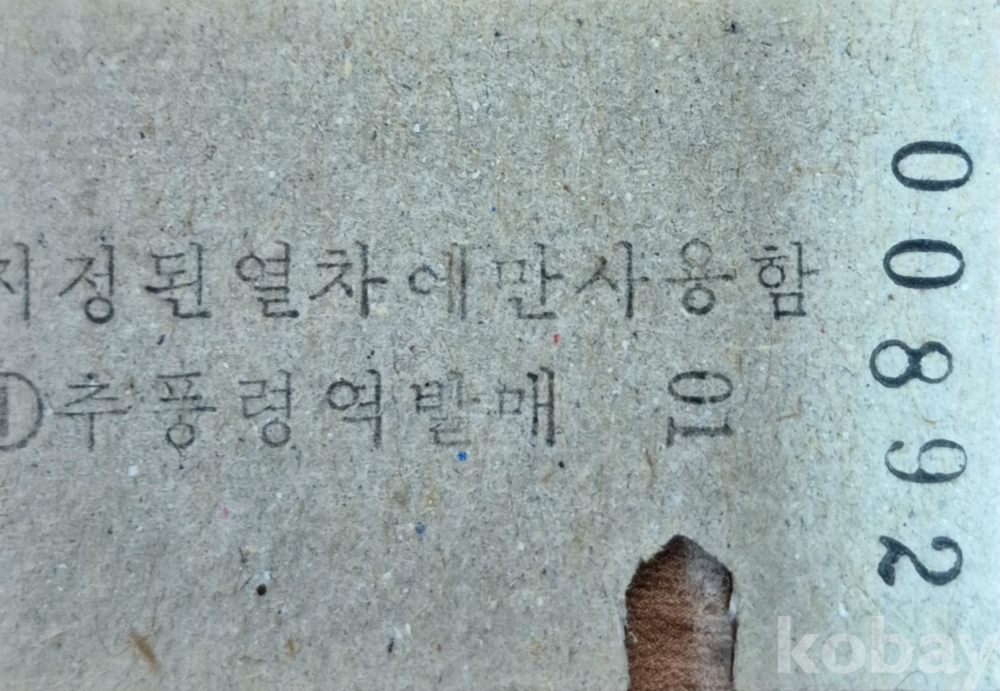 지정된열차에만사용함
①추풍령역발매 01
00892
kobay